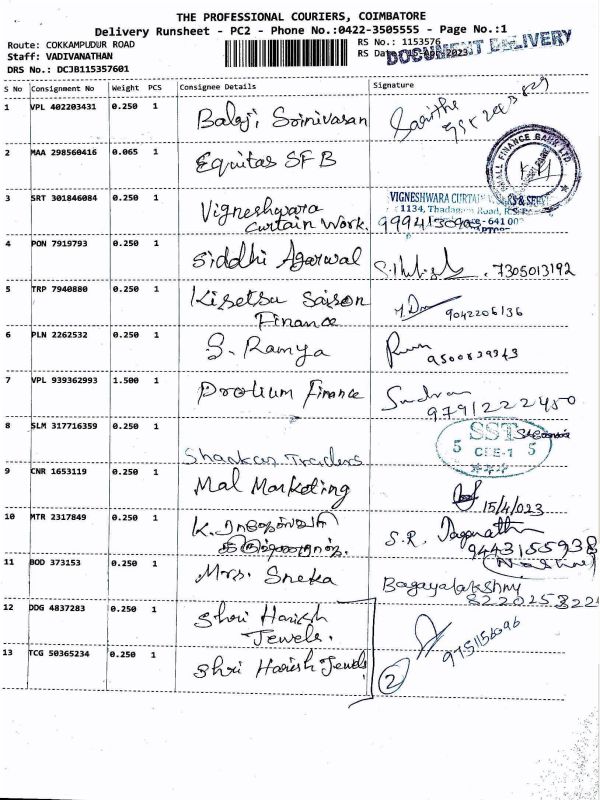 THE PROFESSIONAL COURIERS, COIMBATORE
Delivery Runsheet - PC2 - Phone No.:0422-3505555 - Page No.:1
Route: COKKAMPUDUR ROAD
RS No.: 1153576
Staff: VADIVANATHAN
RS Da
2023
DOCUMENT DELIVERY
DRS No.: DCJB115357601
S No Consignment No Weight PCS Consignee Details Signature
1 VPL 402203431 0.250 1 Balaji Srinivasan
2 MAA 298560416 0.065 1 Equitas SFB
SMALL FINANCE BANK LTD
3 SRT 301846084 0.250 1 Vigneshwara
Curtain Work.
VIGNESHWARA CURTAIN
1134, Thadagam Road, R.S.
- 641 00
4 PON 7919793 0.250 1 Siddhi Agarwal 7305013192
5 TRP 7940880 0.250 1 Kisetsu Saison
Finance
9042206136
6 PLN 2262532 0.250 1 S. Ramya 9500839343
7 VPL 939362993 1.500 1 Protium Finance
9791222450
8 SLM 317716359 0.250 1 Shankar Traders
SST
5 CBE-1 5
9 CNR 1653119 0.250 1 Mal Marketing 15/4/023
10 MTR 2317849 0.250 1 K.
S.R. Jaganathan
9443155938
11 BOD 373153 0.250 1 Mrs. Sneka Bagayalakshmy
12 DDG 4837283 0.250 1 Shri Harish
Jewels.
9751156096
13 TCG 50365234 0.250 1 Shri Harish Jewels
2